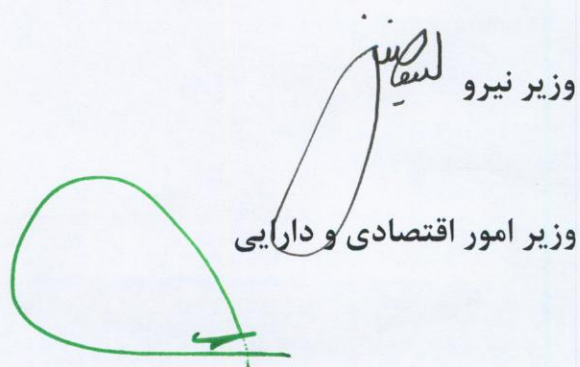 وزیر نیرو
وزیر امور اقتصادی و دارایی